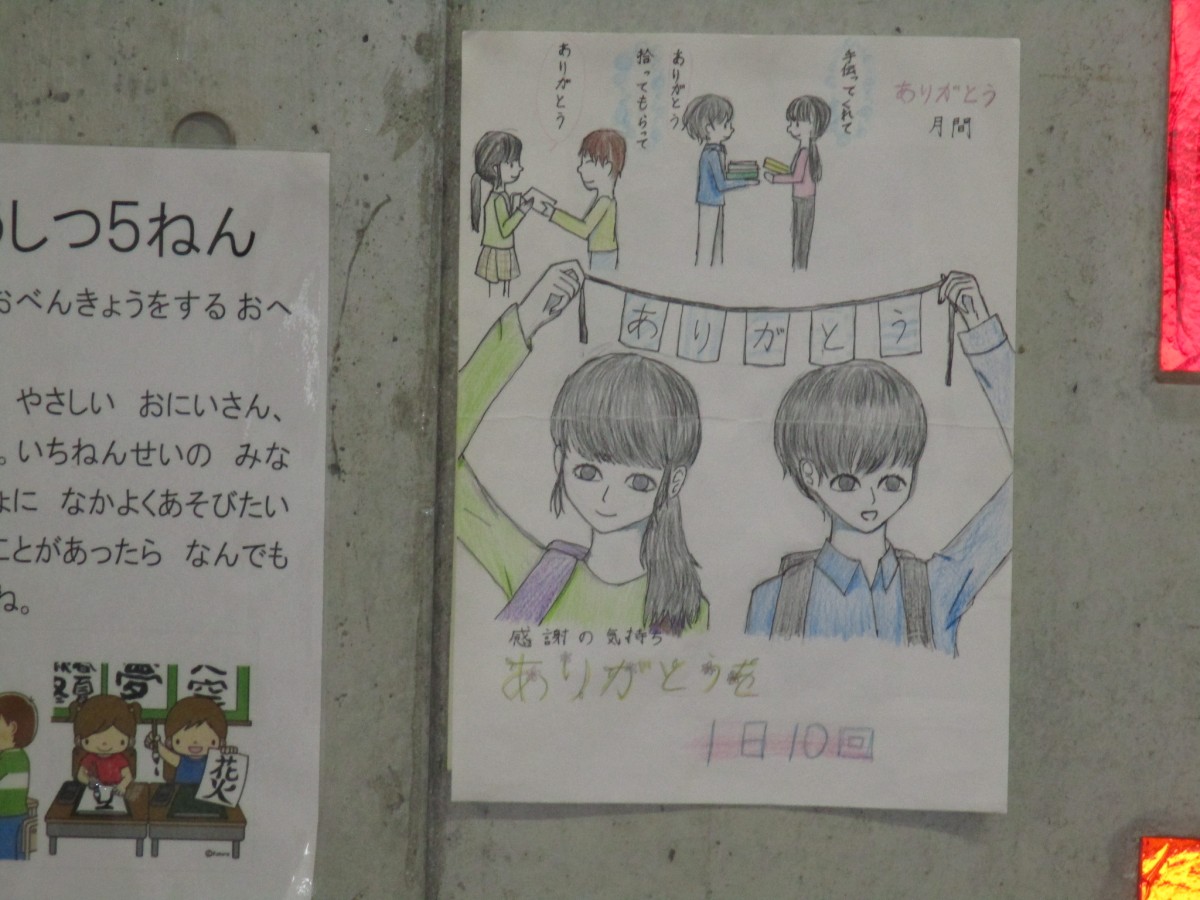 しつ5ねん
おべんきょうをする おへ
やさしい おにいさん、
。いちねんせいの みな
に なかよくあそびたい
ことがあったら なんでも
ね。
夏
夢
空
花火
ありがとう
月間
手伝ってくれて
ありがとう
拾ってもらって
ありがとう
ありがとう
感謝の気持ち
ありがとうを
1日10回